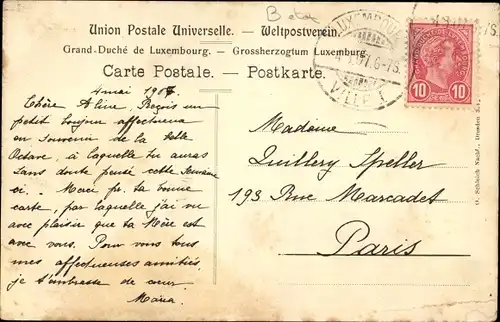 Union Postale Universelle. - Weltpostverein.
Grand-Duché de Luxembourg. - Grossherzogtum Luxemburg.
Carte Postale. - Postkarte.
LUXEMBOURG
VILLE 1
10 10
4 mai 1907.
Chère Aline, Reçois un
petit bonjour affectueux
en souvenir de la belle
Octave, à laquelle tu auras
sans doute pensé cette semaine
ci. Merci pr. ta bonne
carte, par laquelle j'ai vu
avec plaisir que ta Mère est
avec vous. Pour vous tous
mes affectueuses amitiés,
je t'embrasse de cœur
Madame
Quillery Speller
193 Rue Marcadet
Paris